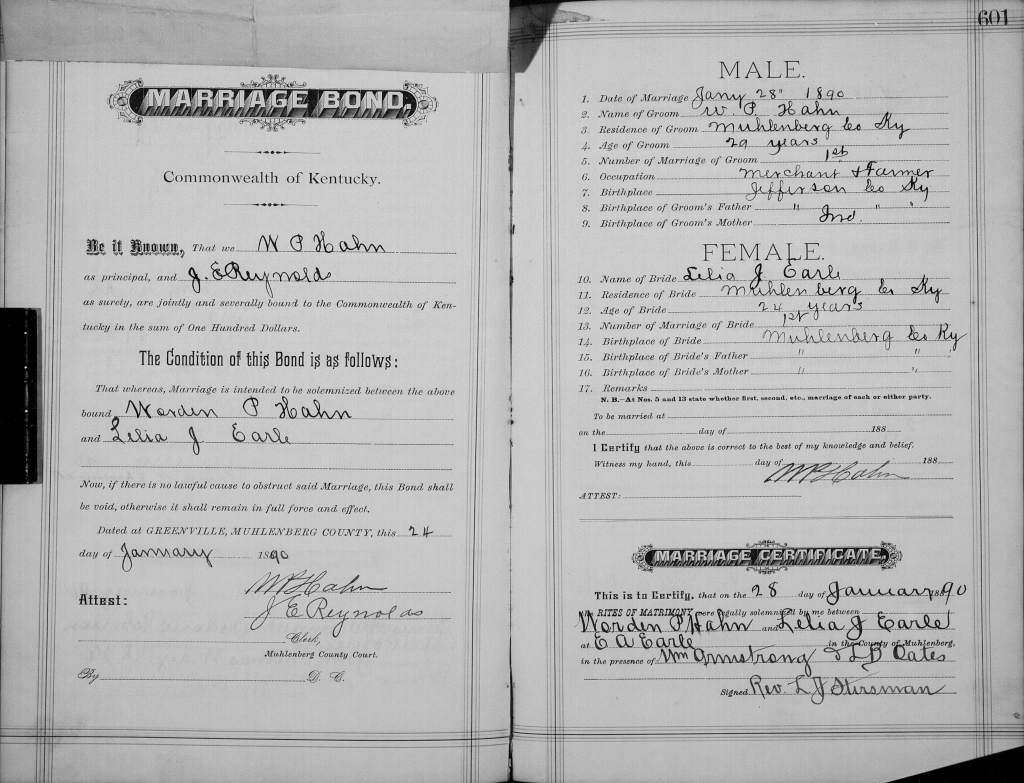 MARRIAGE BOND,
Commonwealth of Kentucky.
Be it Known, That we W P Hahn
as principal, and J. E Reynolds
as surety, are jointly and severally bound to the Commonwealth of Ken-
tucky in the sum of One Hundred Dollars.
The Condition of this Bond is as follows:
That whereas, Marriage is intended to be solemnized between the above
bound Worden P Hahn
and Lelia J Earle
Now, if there is no lawful cause to obstruct said Marriage, this Bond shall
be void, otherwise it shall remain in full force and effect.
Dated at GREENVILLE, MUHLENBERG COUNTY, this 24
day of January 1890
W P Hahn
Attest: J E Reynolds
Clerk,
Muhlenberg County Court.
By D. C.
601
MALE.
1. Date of Marriage Jany 28" 1890
2. Name of Groom W. P. Hahn
3. Residence of Groom Muhlenberg Co Ky
4. Age of Groom 29 years
5. Number of Marriage of Groom 1st
6. Occupation Merchant & Farmer
7. Birthplace Jefferson Co Ky
8. Birthplace of Groom's Father " " "
9. Birthplace of Groom's Mother Ind.
FEMALE.
10. Name of Bride Lelia J Earle
11. Residence of Bride Muhlenberg Co Ky
12. Age of Bride 24 years
13. Number of Marriage of Bride 1st
14. Birthplace of Bride Muhlenberg Co Ky
15. Birthplace of Bride's Father " " "
16. Birthplace of Bride's Mother " "
17. Remarks
N. B.—At Nos. 5 and 13 state whether first, second, etc., marriage of each or either party.
To be married at
on the day of 188
I Certify that the above is correct to the best of my knowledge and belief.
Witness my hand, this day of 188
W P Hahn
ATTEST:
MARRIAGE CERTIFICATE.
This is to Certify, that on the 28 day of January 1890
RITES OF MATRIMONY were legally solemnized by me between
Worden P Hahn and Lelia J Earle
at E A Earle in the County of Muhlenberg,
in the presence of Wm Armstrong & L D Oates
Signed Rev. L J Stirsman